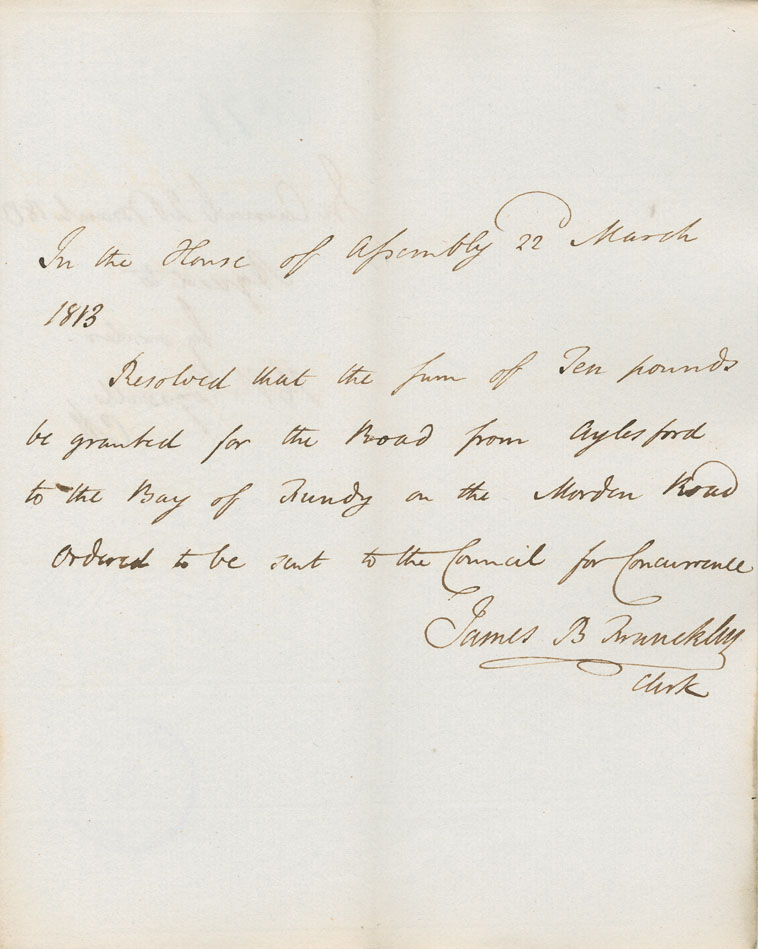 In the House of Assembly 22d March
1813
Resolved that the sum of Ten pounds
be granted for the Road from Aylesford
to the Bay of Fundy on the Morden Road
Ordered to be sent to the Council for Concurrence
James B Francklin
Clerk